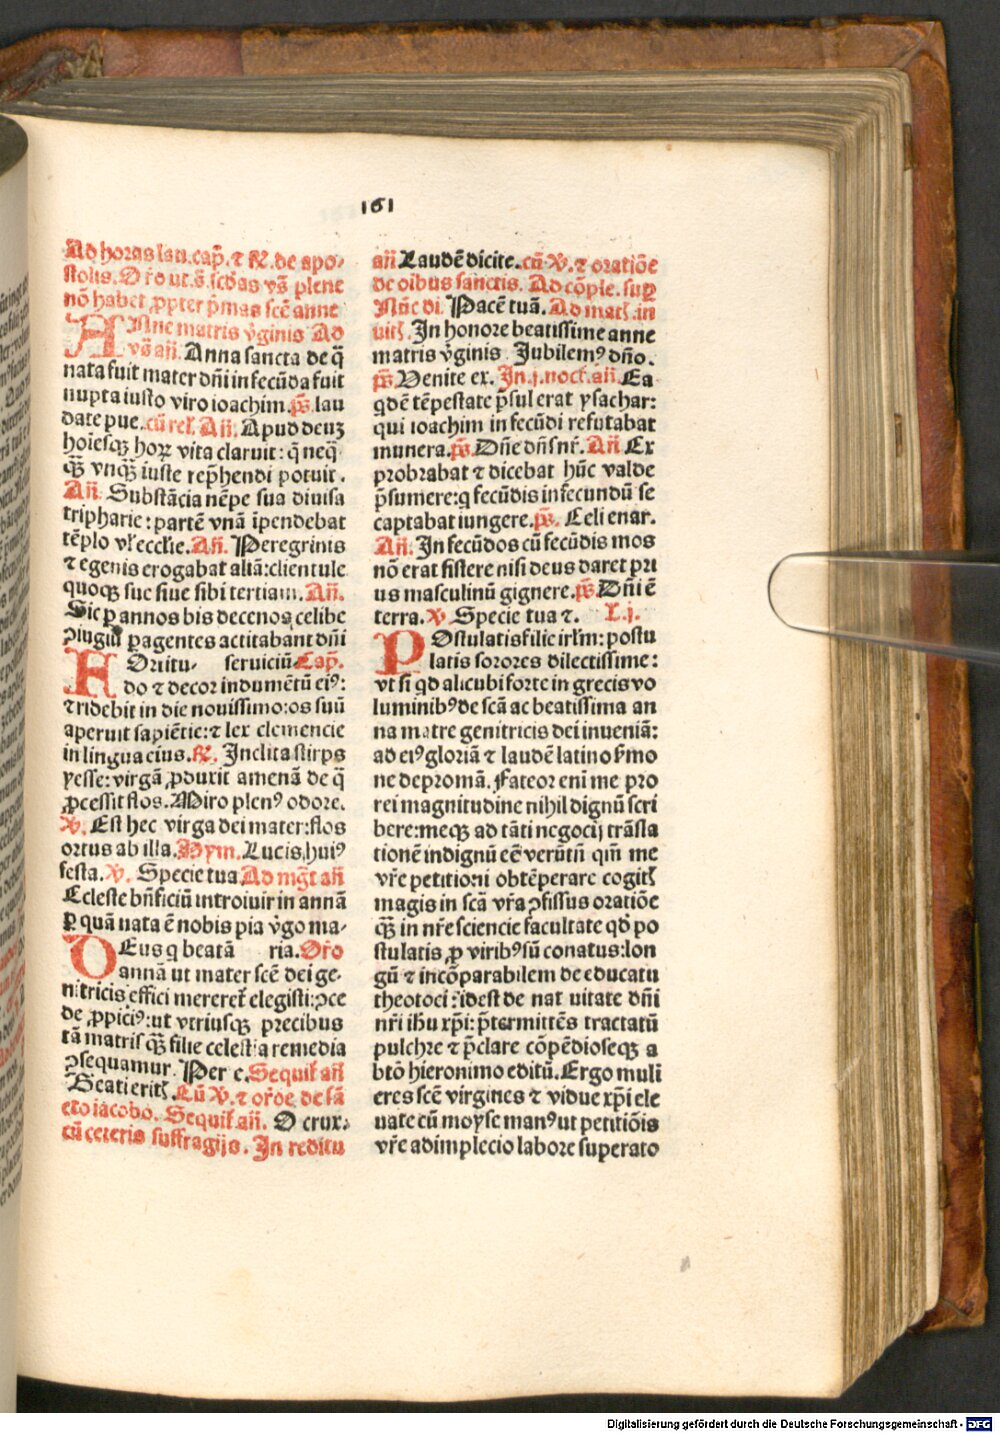 161
Ad horas lau. cap̄. ⁊ ℟. de apo⸗
stolis. Oro ut. s̄. scd̄as vs̄ plene
nō habet ꝓpter p̄mas scē anne
ANne matris v̄ginis Ad
vs̄ añ. Anna sancta de q̄
nata fuit mater dn̄i infecūda fuit
nupta iusto viro ioachim. ps̄. lau
date pue. cū rel̄. Añ. Apud deuꝫ
hoīesqꝫ hoꝝ vita claruit: q̄ neq̄
qꝫ vnqꝫ iuste rep̄hendi potuit.
Añ. Substācia nēpe sua diuisa
tripharie: partē vnā īpendebat
tēplo vl̓ eccl̓ie. Añ. Peregrinis
⁊ egenis erogabat aliā: clientule
quoqꝫ sue siue sibi tertiam. Añ.
Sic ꝑ annos bis decenos celibe
ꝯiugiū ꝑagentes actitabant dn̄i
FOrtitu⸗ seruiciū Cap̄.
do ⁊ decor indumētū eiꝰ:
⁊ ridebit in die nouissimo: os suū
aperuit sapiētie: ⁊ lex clemencie
in lingua eius. ℟. Inclita stirps
yesse: virgā ꝓduxit amenā de q̄
ꝓcessit flos. Miro plenꝰ odore.
℣. Est hec virga dei mater: flos
ortus ab illa. Hym. Lucis huiꝰ
festa. ℣. Specie tua Ad mg̅t añ
Celeste bn̄ficiū introiuit in annā
ꝑ quā nata ē nobis pia v̄go ma⸗
DEus q beatā ria. Oro
annā ut mater scē dei ge⸗
nitricis effici mereret̄ elegisti: ꝯce
de ꝓpiciꝰ: ut vtriusqꝫ precibus
tā matris qꝫ filie celestia remedia
ꝯsequamur. Per e. Sequit̄ añ
Beati eritꝭ. Cū ℣. ⁊ or̄oe de sā
cto iacobo. Sequit̄ añ. O crux.
cū ceteris suffragijs. In reditu
añ Laudē dicite. cū ℣. ⁊ oratiōe
de oībus sanctis. Ad cōple. sup̄
Nūc di. Pacē tuā. Ad matꝭ. in
uitꝭ. In honore beatissime anne
matris v̄ginis Jubilemꝰ dn̄o.
ps̄. Venite ex. In. j. noct. añ. Ea
qdē tēpestate p̄sul erat ysachar:
qui ioachim in fecūdi refutabat
munera. ps̄. Dn̄e dn̄s nr̄. Añ Ex
probrabat ⁊ dicebat hūc valde
p̄sumere: q fecūdis infecundū se
captabat iungere. ps̄. Celi enar.
Añ. In fecūdos cū fecūdis mos
nō erat sistere nisi deus daret pri
us masculinū gignere. ps̄. Dn̄i ē
terra. ℣. Specie tua ⁊. L. j.
POstulatis filie ir̄lm: postu
latis sorores dilectissime:
vt si qd alicubi forte in grecis vo
luminibꝰ de scā ac beatissima an
na matre genitricis dei inueniā:
ad eiꝰ gloriā ⁊ laudē latino s̓mo
ne depromā. Fateor eni me pro
rei magnitudine nihil dignū scri
bere: meqꝫ ad tāti negocij trāsla
tionē indignū eē verūtn̄ qm̄ me
vr̄e petitioni obtēperare cogitꝭ
magis in scā vr̄a ꝯfisus oratiōe
qꝫ in nr̄e sciencie facultate qd̄ po
stulatis, ꝓ viribꝰ sū conatus: lon
gū ⁊ incōparabilem de educatu
theotoci: idest de nat uitate dn̄i
nr̄i ihū xp̄i: p̄termittēs tractatū
pulchre ⁊ p̄clare cōpēdioseqꝫ a
btō hieronimo editū. Ergo muli
eres scē virgines ⁊ vidue xp̄i ele
uate cū moyse manꝰ ut petitiōis
vr̄e adimplecio labore superato
Digitalisierung gefördert durch die Deutsche Forschungsgemeinschaft - DFG